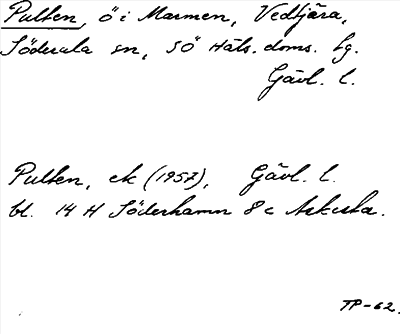 Pulten, ö i Marmen, Vedtjära,
Söderala sn, SÖ Häls. doms. tg.
Gävl. l.
Pulten, ek (1957), Gävl. l.
bl. 14 H Söderhamn 8 c Askesta.
TP-62.